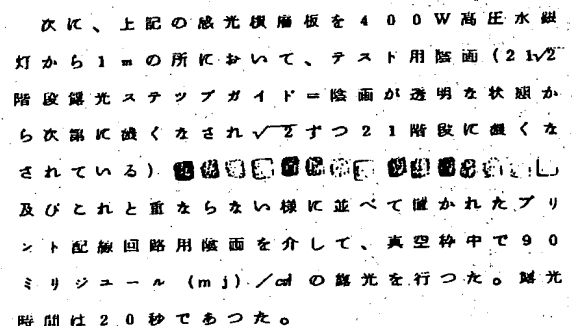 次に、上記の感光積層板を400W高圧水銀
灯から1mの所において、テスト用陰画(21√2
段階露光ステップガイド=陰画が透明な状態か
ら次第に濃くなされ√2ずつ21階段に濃くな
されている)
及びこれと重ならない様に並べて置かれたプリ
ント配線回路用陰画を介して、真空枠中で90
ミリジュール(mj)/cm²の露光を行つた。露光
時間は20秒であつた。